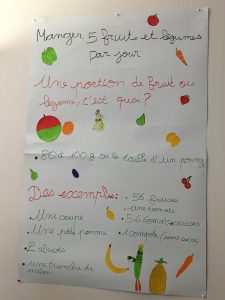 Manger 5 fruits et légumes
par jour
Une portion de fruit ou
légume, c'est quoi?
• 80 à 100 g ou la taille d'un poing
Des exemples:
• Une
• Une ptite pomme
• 2 abricots
• une tranche de
melon
• 5 fraises
• une tomate
• 5 tomates cerises
• 1 compote (sans sucre)